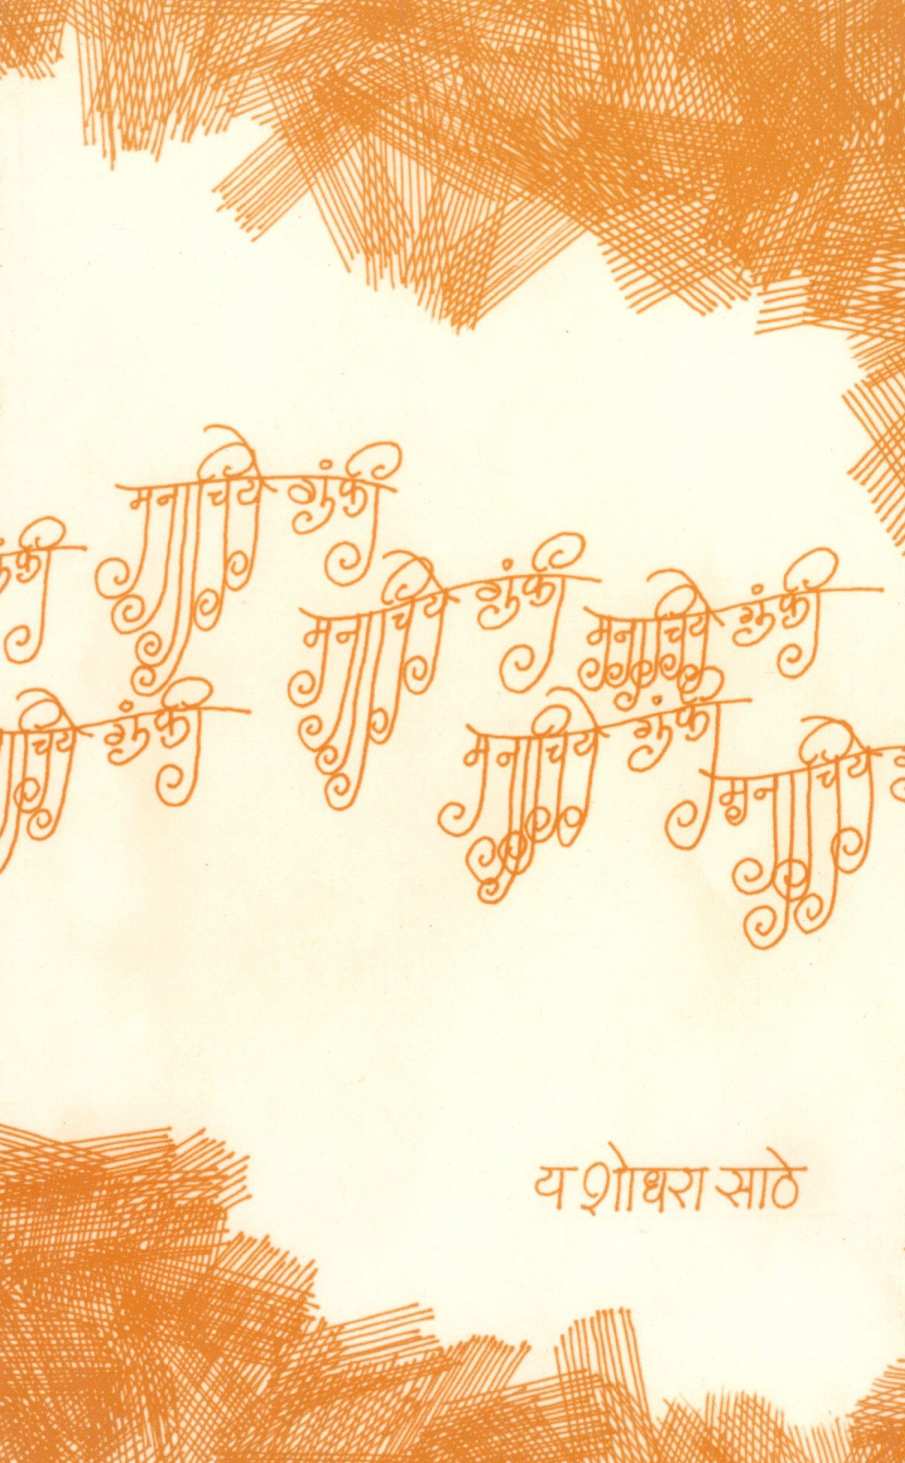 मनाचिये गुंफी
गुंफी
मनाचिये गुंफी
मनाचिये गुंफी
चिये गुंफी
मनाचिये गुंफी
मनाचिये
यशोधरा साठे